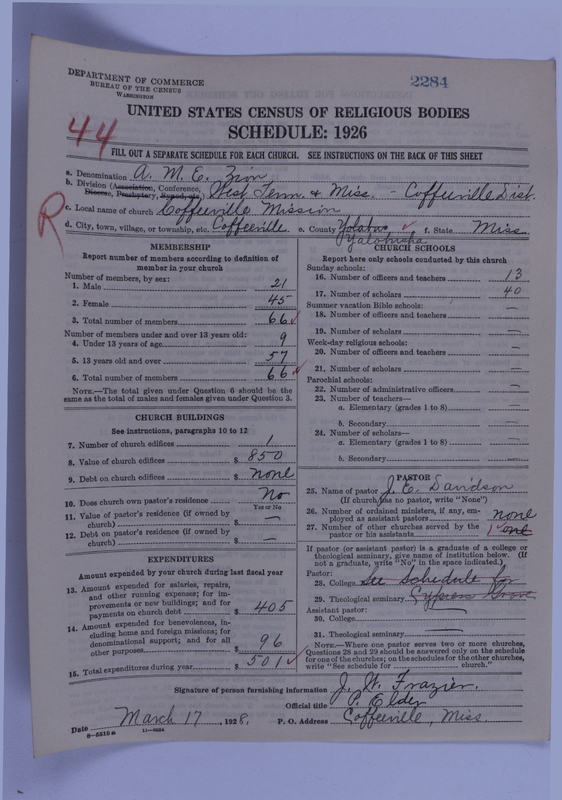 DEPARTMENT OF COMMERCE
BUREAU OF THE CENSUS
WASHINGTON
2284
UNITED STATES CENSUS OF RELIGIOUS BODIES
SCHEDULE: 1926
44
FILL OUT A SEPARATE SCHEDULE FOR EACH CHURCH. SEE INSTRUCTIONS ON THE BACK OF THIS SHEET
R
a. Denomination A. M. E. Zion
b. Division (Association, Conference, Diocese, Presbytery, Synod, etc.) West Tenn. & Miss. - Coffeeville Dist.
c. Local name of church Coffeeville Mission
d. City, town, village, or township, etc. Coffeeville e. County Yolabus f. State Miss.
Yalobusha
MEMBERSHIP
Report number of members according to definition of
member in your church
Number of members, by sex:
1. Male 21
2. Female 45
3. Total number of members 66
Number of members under and over 13 years old:
4. Under 13 years of age 9
5. 13 years old and over 57
6. Total number of members 66
NOTE.—The total given under Question 6 should be
same as the total of males and females given under Question 3.
CHURCH BUILDINGS
See instructions, paragraphs 10 to 12
7. Number of church edifices 1
8. Value of church edifices $ 850
9. Debt on church edifices $ none
10. Does church own pastor's residence No
Yes or No
11. Value of pastor's residence (if owned by
church) $ —
12. Debt on pastor's residence (if owned by
church) $ —
EXPENDITURES
Amount expended by your church during last fiscal year
13. Amount expended for salaries, repairs,
and other running expenses; for im-
provements or new buildings; and for
payments on church debt $ 405
14. Amount expended for benevolences, in-
cluding home and foreign missions; for
denominational support; and for all
other purposes $ 96
15. Total expenditures during year $ 501
CHURCH SCHOOLS
Report here only schools conducted by this church
Sunday schools:
16. Number of officers and teachers 13
17. Number of scholars 40
Summer vacation Bible schools:
18. Number of officers and teachers —
19. Number of scholars —
Week-day religious schools:
20. Number of officers and teachers —
21. Number of scholars —
Parochial schools:
22. Number of administrative officers —
23. Number of teachers—
a. Elementary (grades 1 to 8) —
b. Secondary —
24. Number of scholars—
a. Elementary (grades 1 to 8) —
b. Secondary —
PASTOR
25. Name of pastor J. E. Davidson
(If church has no pastor, write "None")
26. Number of ordained ministers, if any, em-
ployed as assistant pastors none
27. Number of other churches served by the
pastor or his assistants 1 one
If pastor (or assistant pastor) is a graduate of a college or
theological seminary, give name of institution below. (If
not a graduate, write "No" in the space indicated.)
Pastor:
28. College See Schedule for
29. Theological seminary Cypress Grove
Assistant pastor:
30. College —
31. Theological seminary —
NOTE.—Where one pastor serves two or more churches,
Questions 28 and 29 should be answered only on the schedule
for one of the churches; on the schedules for the other churches,
write "See schedule for church."
Signature of person furnishing information J. W. Frazier.
Official title P. Elder
Date March 17, 1928. P. O. Address Coffeeville, Miss
8—5510 a 11—9034